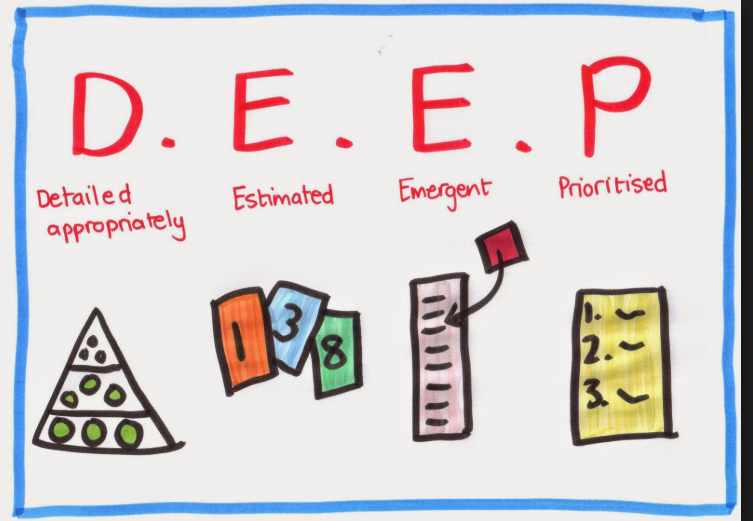 D. E. E. P
Detailed appropriately
Estimated
Emergent
Prioritised
1 3 8
1.
2.
3.